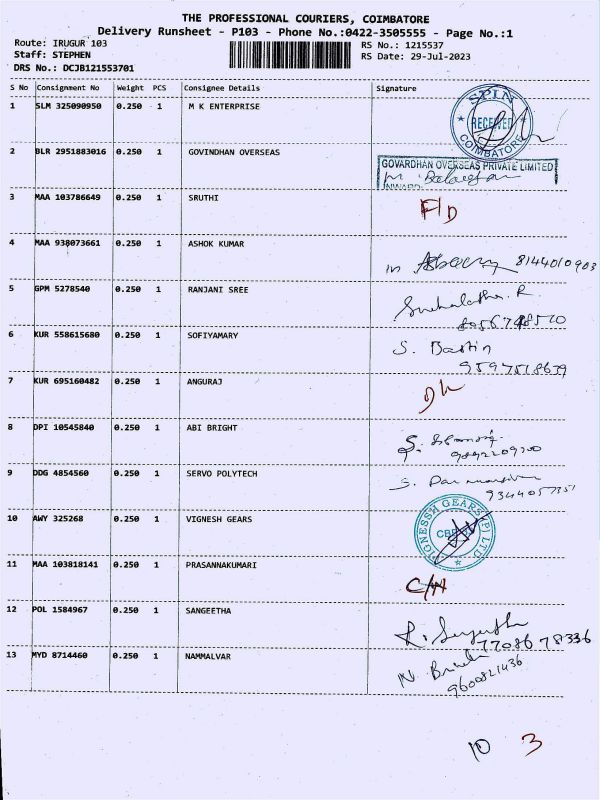 THE PROFESSIONAL COURIERS, COIMBATORE
Delivery Runsheet - P103 - Phone No.:0422-3505555 - Page No.:1
Route: IRUGUR 103 RS No.: 1215537
Staff: STEPHEN RS Date: 29-Jul-2023
DRS No.: DCJB121553701
S No Consignment No Weight PCS Consignee Details Signature
1 SLM 325090950 0.250 1 M K ENTERPRISE
SPIN
RECEIVED
COIMBATORE
2 BLR 2951883016 0.250 1 GOVINDHAN OVERSEAS
GOVARDHAN OVERSEAS PRIVATE LIMITED
INWARD
3 MAA 103786649 0.250 1 SRUTHI F/D
4 MAA 938073661 0.250 1 ASHOK KUMAR 8144010903
5 GPM 5278540 0.250 1 RANJANI SREE
6 KUR 558615680 0.250 1 SOFIYAMARY S. Bastin
9597518679
7 KUR 695160482 0.250 1 ANGURAJ
8 DPI 10545840 0.250 1 ABI BRIGHT
9 DDG 4854560 0.250 1 SERVO POLYTECH
10 AWY 325268 0.250 1 VIGNESH GEARS
VIGNESSH GEARS (P) LTD
11 MAA 103818141 0.250 1 PRASANNAKUMARI
12 POL 1584967 0.250 1 SANGEETHA
7708678336
13 MYD 8714460 0.250 1 NAMMALVAR
9600821436
10 3